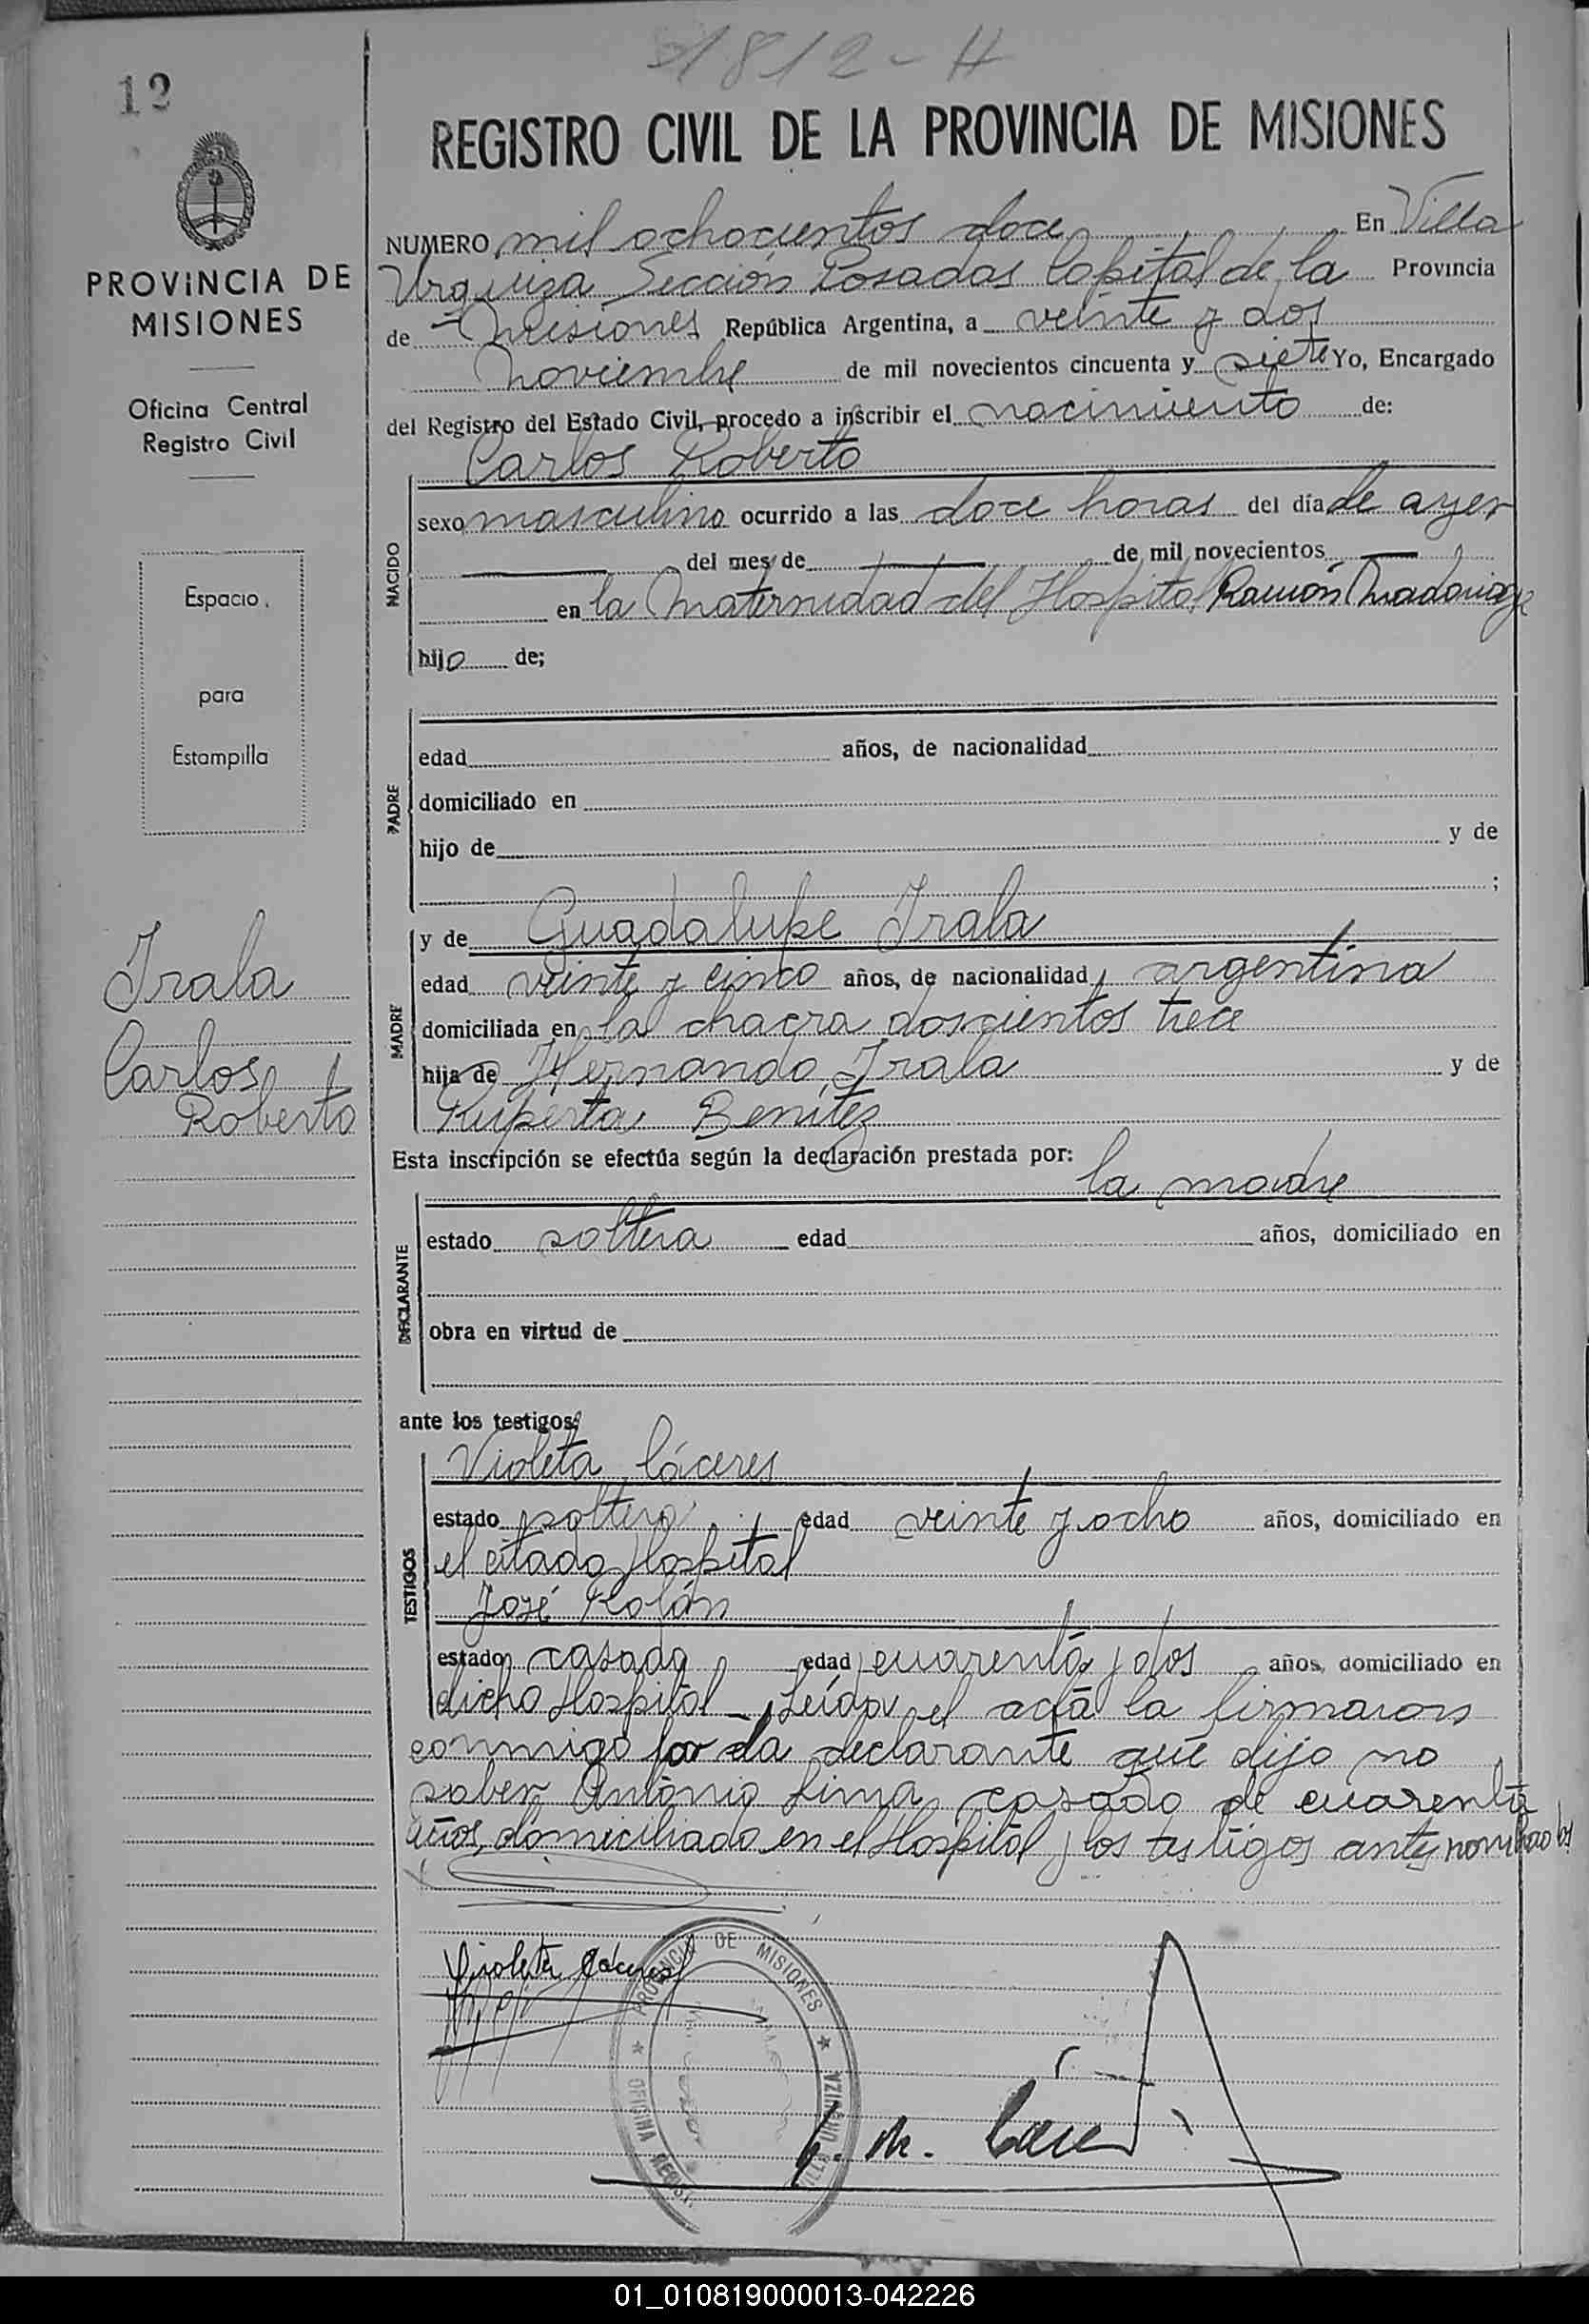 1812-H
12
REGISTRO CIVIL DE LA PROVINCIA DE MISIONES
PROVINCIA DE
MISIONES
Oficina Central
Registro Civil
Espacio
para
Estampilla
Irala
Carlos
Roberto
NUMERO mil ochocientos doce En Villa
Urquiza Sección Posadas Capital de la Provincia
de Misiones República Argentina, a veinte y dos
Noviembre de mil novecientos cincuenta y siete Yo, Encargado
del Registro del Estado Civil, procedo a inscribir el nacimiento de:
Carlos Roberto
NACIDO
sexo masculino ocurrido a las doce horas del día de ayer
del mes de de mil novecientos
en la Maternidad del Hospital Ramón Madariaga
hijo de;
PADRE
edad años, de nacionalidad
domiciliado en
hijo de y de
;
MADRE
y de Guadalupe Irala
edad veinte y cinco años, de nacionalidad argentina
domiciliada en la chacra doscientos trece
hija de Hernando Irala y de
Ruperta Benítez
Esta inscripción se efectúa según la declaración prestada por:
la madre
DECLARANTE
estado soltera edad años, domiciliado en
obra en virtud de
ante los testigos:
TESTIGOS
Violeta Cáceres
estado soltera edad veinte y ocho años, domiciliado en
el citado Hospital
José Rolón
estado casado edad cuarenta y dos años, domiciliado en
dicho Hospital - Leída el acta la firmaron
conmigo por la declarante que dijo no
saber Antonio Lima casado de cuarenta
años, domiciliado en el Hospital y los testigos antes nombrados
Violeta Cáceres
PROVINCIA DE MISIONES * VILLA URQUIZA
* OFICINA REGIST.
01_010819000013-042226